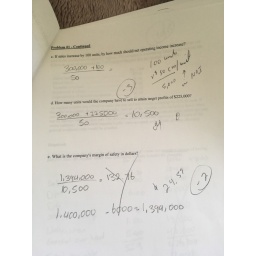 Problem #2 - Continued
c. If sales increase by 100 units, by how much should net operating income increase?
300,000 + 50
50
100 units
-3
d. How many units would the company have to sell to attain target profits of $225,000?
300,000 + 225000 = 10,500
50
e. What is the company's margin of safety in dollars?
1,394,000 = 132.76
10,500
-2
1,400,000 - 6000 = 1,394,000